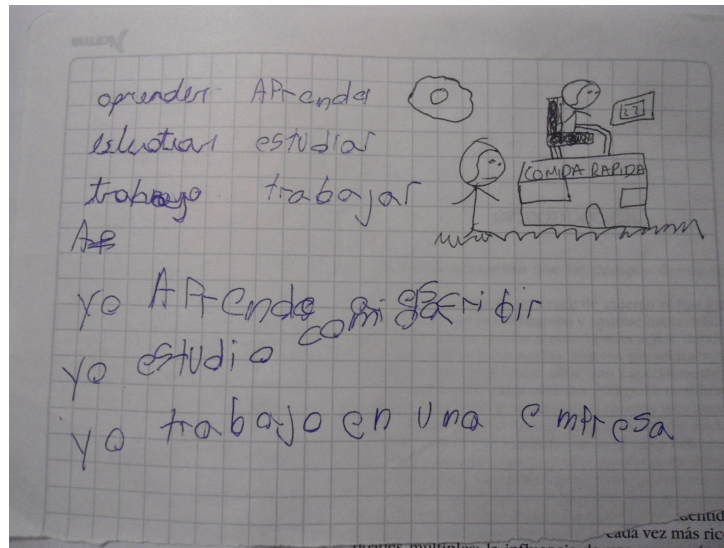 aprender APrenda
estudiar
trabajo trabajar
COMIDA RAPIDA
yo APrendo escribir
yo estudio
yo trabajo en una empresa
cada vez más ric